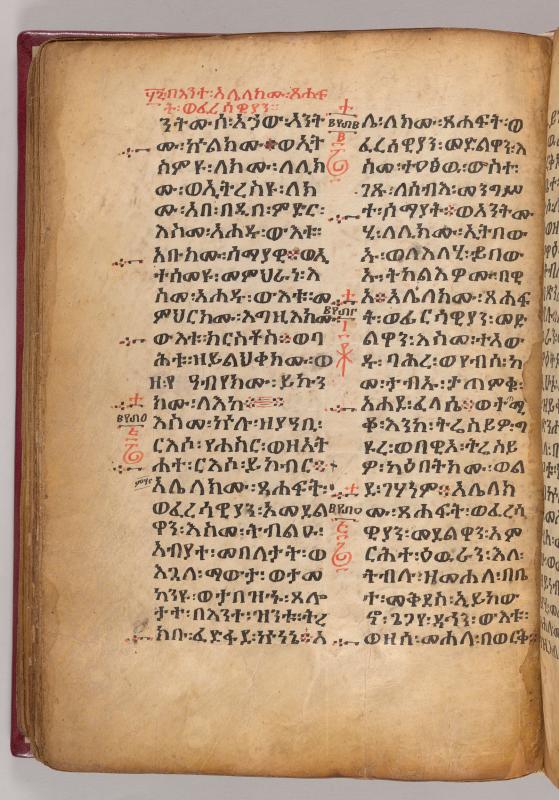 ፶፯፡በእንተ፡አሌለክሙ፡ጸሐፍ
ት፡ወፈሪሳዊያን፡
ንትሙሰ፡አኃው፡አንት
ሙ፡ኵልክሙ፡ወአት
ስምዩ፡ለክሙ፡ለሊክ
ሙ፡ወኢትረስዩ፡ለክ
ሙ፡አበ፡በዲበ፡ምድር፡
እስመ፡አሐዱ፡ውእቱ፡
አቡክሙ፡ሰማያዊ፡ወኢ
ተሰመዩ፡መምህራነ፡እ
ስመ፡አሐዱ፡ውእቱ፡መ
ምህርክሙ፡እግዚእክሙ፡
ውእቱ፡ክርስቶስ፡ወባ
ሕቱ፡ዘይልህቀክሙ፡ወ
ዘ፡የ ዓብየክሙ፡ይኩን
ክሙ፡ለእክ
እስመ፡ኵሉ፡ዘያዓቢ፡
ርእሶ፡የሐስር፡ወዘአት
ሐተ፡ርእሶ፡ይከብር፡
አሌለክሙ፡ጸሐፍት፡
ወፈሪሳዊያን፡አመደል
ዋን፡እስመ፡ትብልዑ፡
አብያተ፡መበለታት፡ወ
እጓለ፡ማውታ፡ወታመ
ካንዩ፡ወታበዝኁ፡ጸሎ
ታተ፡በእንተ፡ዝንቱ፡ትረ
ክቡ፡ፈድፋደ፡ኵነኔ፡አ
ሌ፡ለክሙ፡ጸሐፍት፡ወ
ፈሪሳዊያን፡መደልዋን፡እ
ስመ፡ተዐፅዉ፡ውስተ፡
ገጹ፡ለሰብእ፡መንግሥ
ተ፡ሰማያት፡ወአንትሙ
ሂ፡ለሊክሙ፡ኢትበው
ኡ፡ወለእለሂ፡ይበው
ኡ፡ትከልእዎሙ፡በዊ
አ፡አሌለክሙ፡ጸሐፍ
ት፡ወፈርሳዊያን፡መድ
ልዋን፡እስመ፡ተአው
ዱ፡ባሕረ፡ወየብሰ፡ከ
መ፡ታብኡ፡ታጠምቁ፡
አሐደ፡ፈላሴ፡ወተጠሚ
ቆ፡እንከ፡ትሬስይዎ፡ግ
ዩረ፡ወበዊአ፡ትሬስይ
ዎ፡ካዕበትክሙ፡ወል
ደ፡ገሃነም፡አሌለክ
ሙ፡ጸሐፍት፡ወፈሪሳ
ዊያን፡መደልዋን፡አም
ርሕተ፡ዕዉራን፡እለ፡
ትብሉ፡ዘመሐለ፡በቤ
ተ፡መቅደስ፡ኢይከው
ኖ፡ጌጋየ፡ዳኅን፡ውእቱ፡
ወዘሰ፡መሐለ፡በወርቅ፡